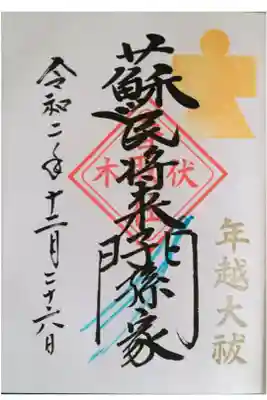 年越大祓
蘇民将来子孫家門
伏木
令和二年十二月二十六日